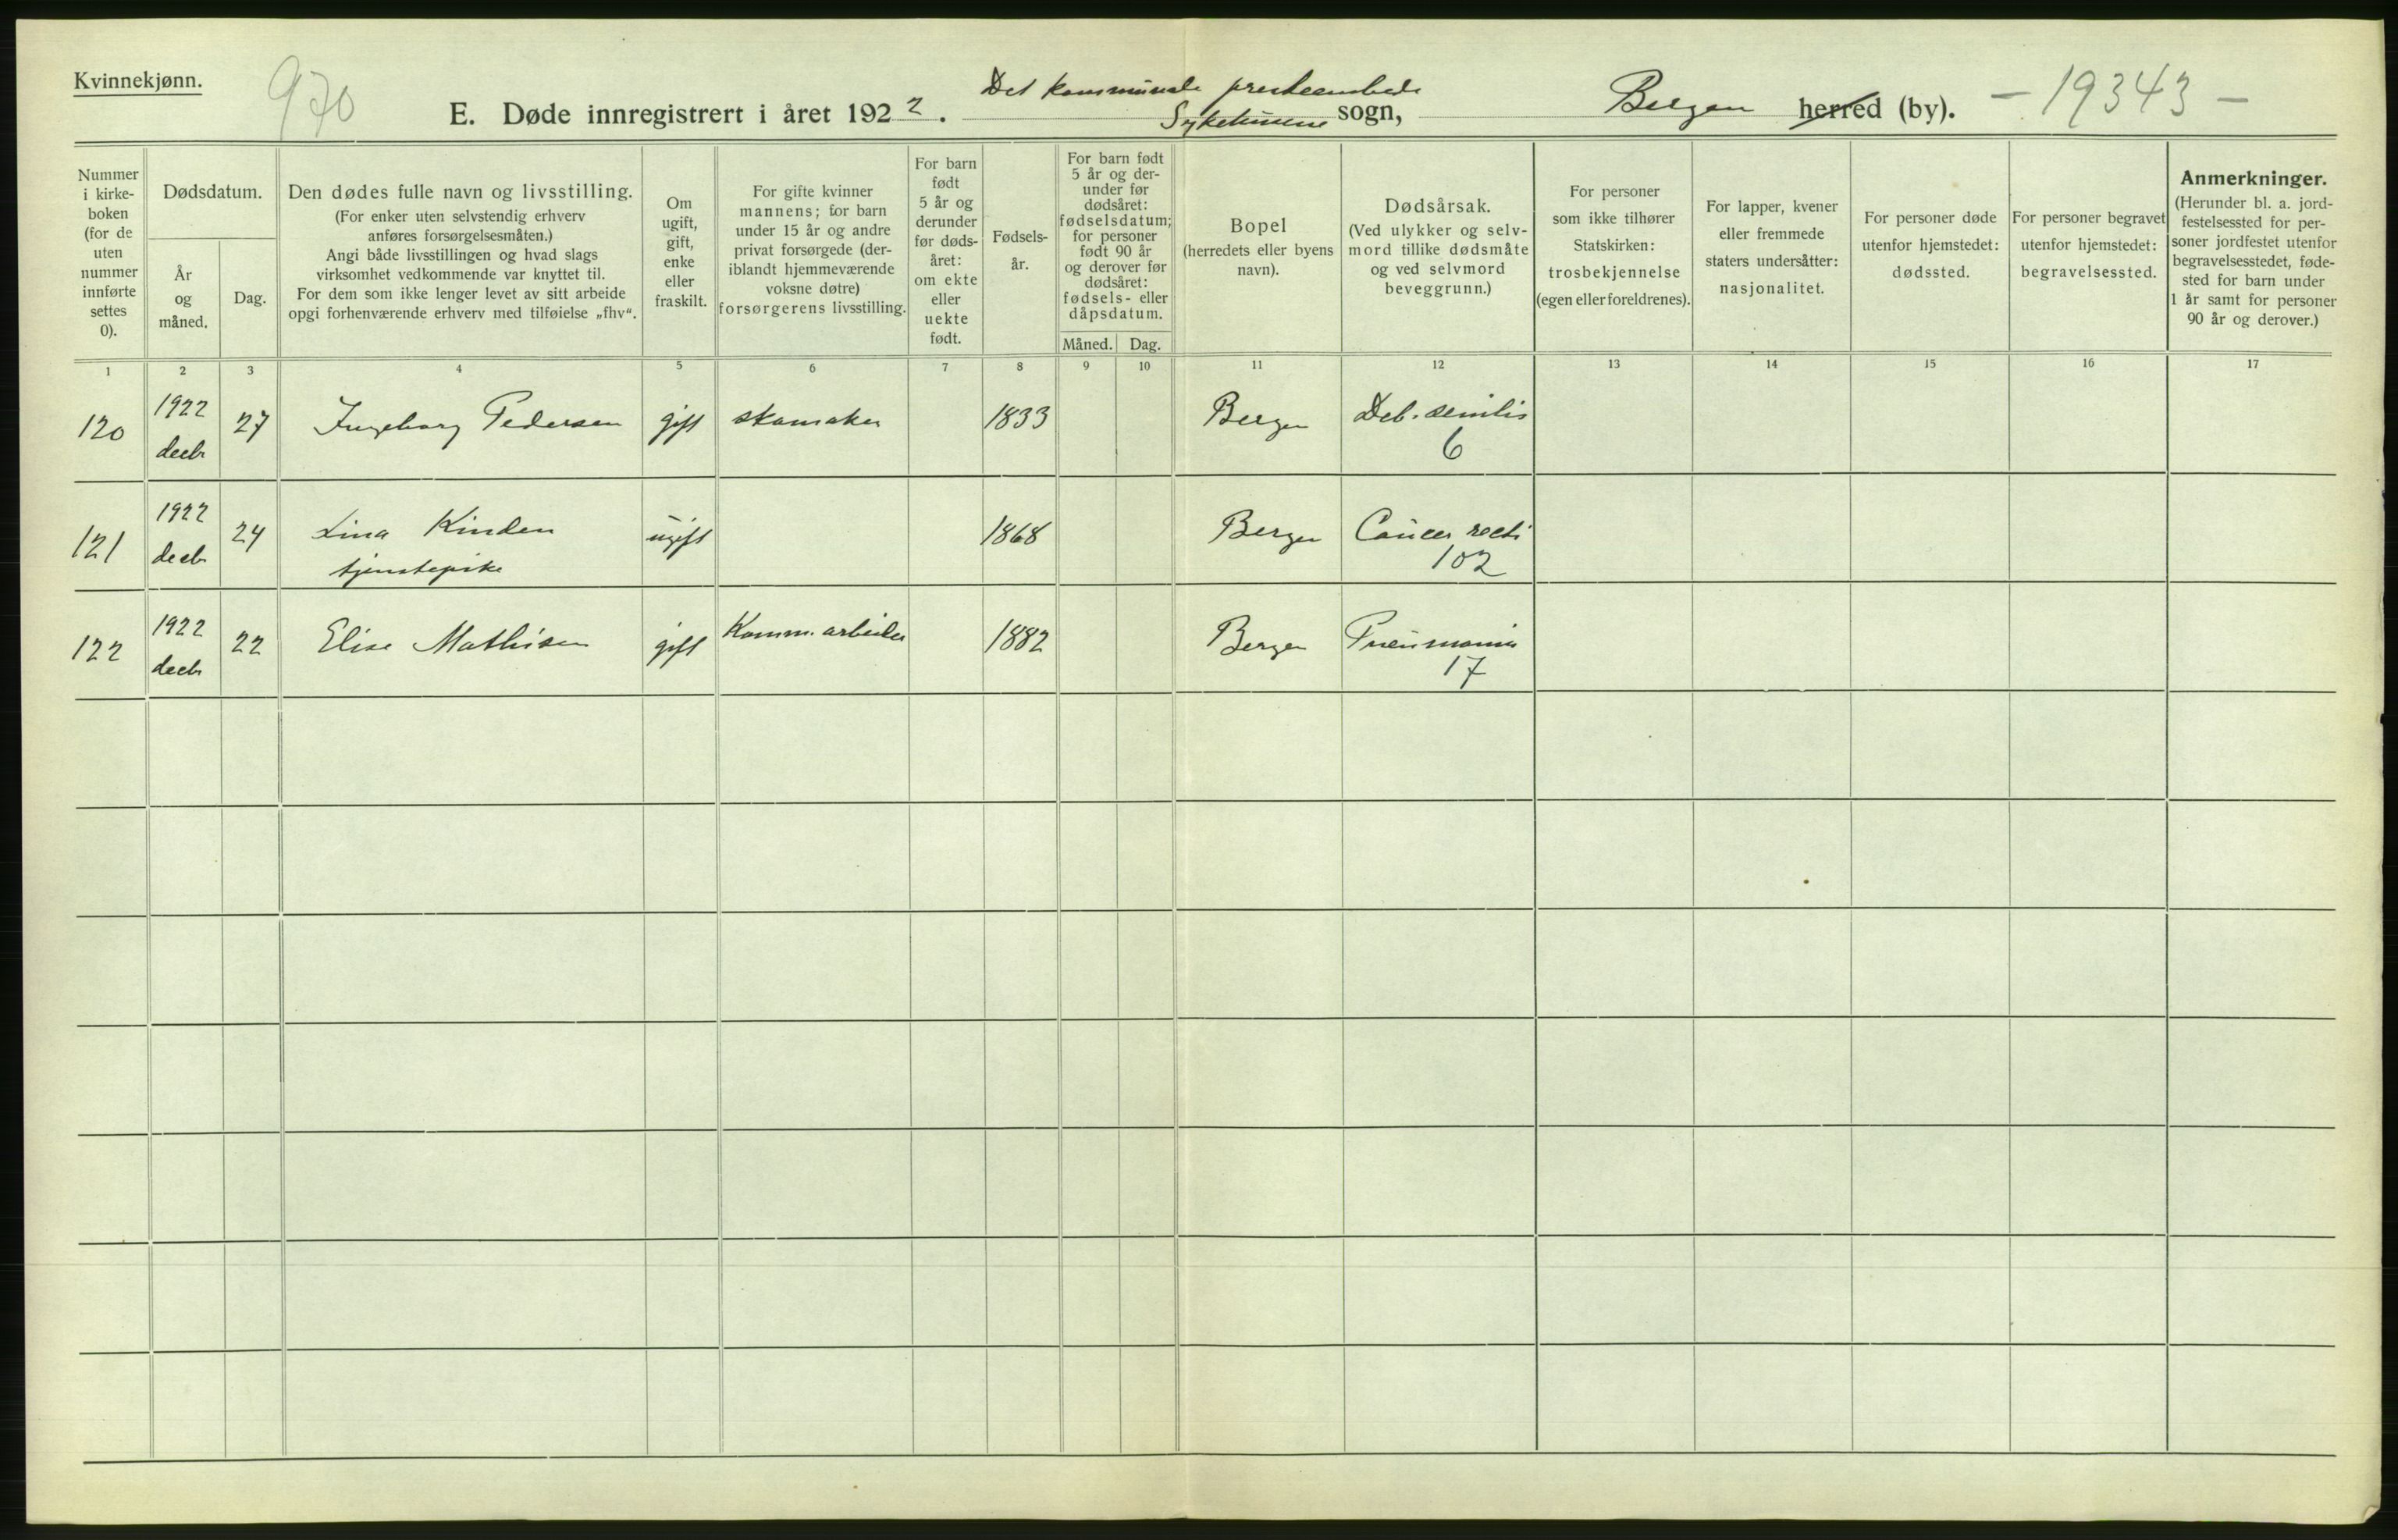 Kvinnekjønn.
970
E. Døde innregistrert i året 1922. Det kommunale presteembede
Sykehusene sogn, Bergen herred (by). – 19343 –
Nummer
i kirke-
boken
(for de
uten
nummer
innførte
settes
0).
Dødsdatum.
År
og
måned.
Dag.
Den dødes fulle navn og livsstilling.
(For enker uten selvstendig erhverv
anføres forsørgelsesmåten.)
Angi både livsstillingen og hvad slags
virksomhet vedkommende var knyttet til.
For dem som ikke lenger levet av sitt arbeide
opgi forhenværende erhverv med tilføielse „fhv“.
Om
ugift,
gift,
enke
eller
fraskilt.
For gifte kvinner
mannens; for barn
under 15 år og andre
privat forsørgede (der-
iblandt hjemmeværende
voksne døtre)
forsørgerens livsstilling.
For barn
født
5 år og
derunder
før døds-
året:
om ekte
eller
uekte
født.
Fødsels-
år.
For barn født
5 år og der-
under før
dødsåret:
fødselsdatum;
for personer
født 90 år
og derover før
dødsåret:
fødsels- eller
dåpsdatum.
Måned. Dag.
Bopel
(herredets eller byens
navn).
Dødsårsak.
(Ved ulykker og selv-
mord tillike dødsmåte
og ved selvmord
beveggrunn.)
For personer
som ikke tilhører
Statskirken:
trosbekjennelse
(egen eller foreldrenes).
For lapper, kvener
eller fremmede
staters undersåtter:
nasjonalitet.
For personer døde
utenfor hjemstedet:
dødssted.
For personer begravet
utenfor hjemstedet:
begravelsessted.
Anmerkninger.
(Herunder bl. a. jord-
festelsessted for per-
soner jordfestet utenfor
begravelsesstedet, føde-
sted for barn under
1 år samt for personer
90 år og derover.)
1 2 3 4 5 6 7 8 9 10 11 12 13 14 15 16 17
120 1922 27 Ingeborg Pedersen gift skomaker 1833 Bergen Deb. senilis
decbr 6
121 1922 24 Lina Kinden ugift 1868 Bergen Cancer recti
decbr tjenstepike 102
122 1922 22 Elise Mathisen gift Komm. arbeider 1882 Bergen Pneumonia
decbr 17